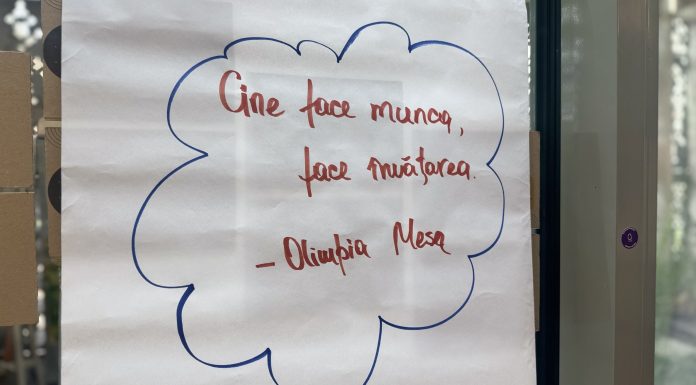 Cine face munca,
face învățarea.
- Olimpia Mesa